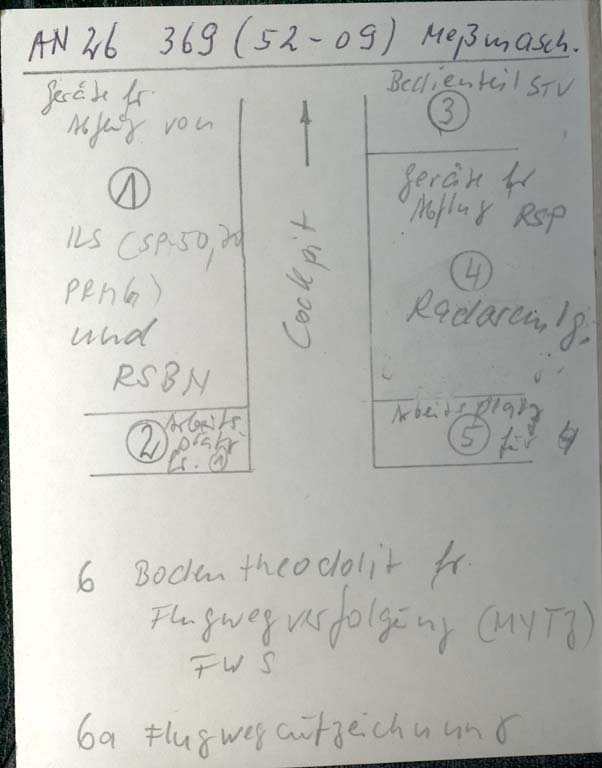 AN 26 369 (52-09) Meßmasch.
Geräte fr.
Abflug von
1
ILS (SP-50, 70
PRMG)
und
RSBN
2 Arbeits
platz
fr. 1
Cockpit
Bedienteil STV
3
Geräte fr
Abflug RSP
4
Radaranlg.
Arbeitsplatz
5 für 4
6 Bodentheodolit fr.
Flugwegverfolgung (MYTZ)
FWS
6a Flugwegaufzeichnung